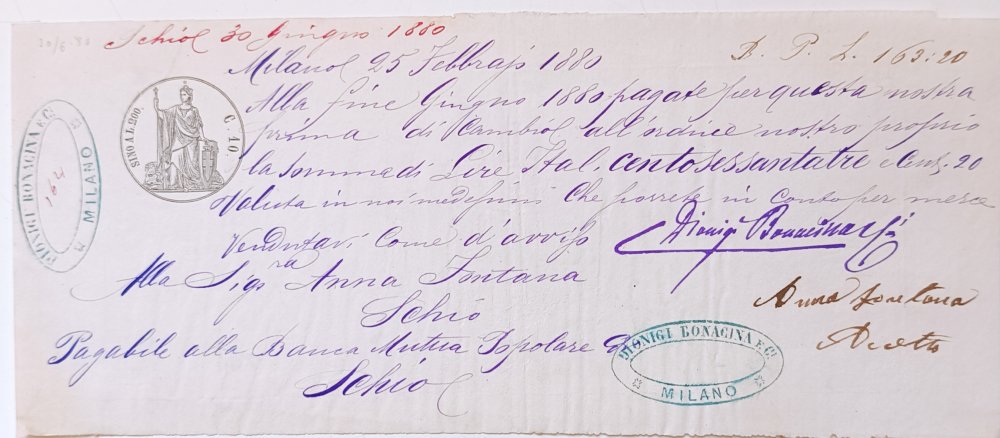 30/6.80
Schio 30 Giugno 1880
Milano 25 Febbrajo 1880
B. P. L. 163:20
Alla fine Giugno 1880 pagate per questa nostra
prima di Cambio all'ordine nostro proprio
la somma di Lire Ital. centosessantatre e Cent: 20
Valuta in noi medesimi che porrete in conto per merce
Vendutavi Come d'avviso
Dionigi Bonacina & Ci
Alla Sigra Anna Fontana
Schio
Anna Fontana
Accetto
Pagabile alla Banca Mutua Popolare di
Schio
SINO A L. 200.
C. 10.
DIONIGI BONACINA E Ci.
164
MILANO
DIONIGI BONACINA E Ci.
MILANO